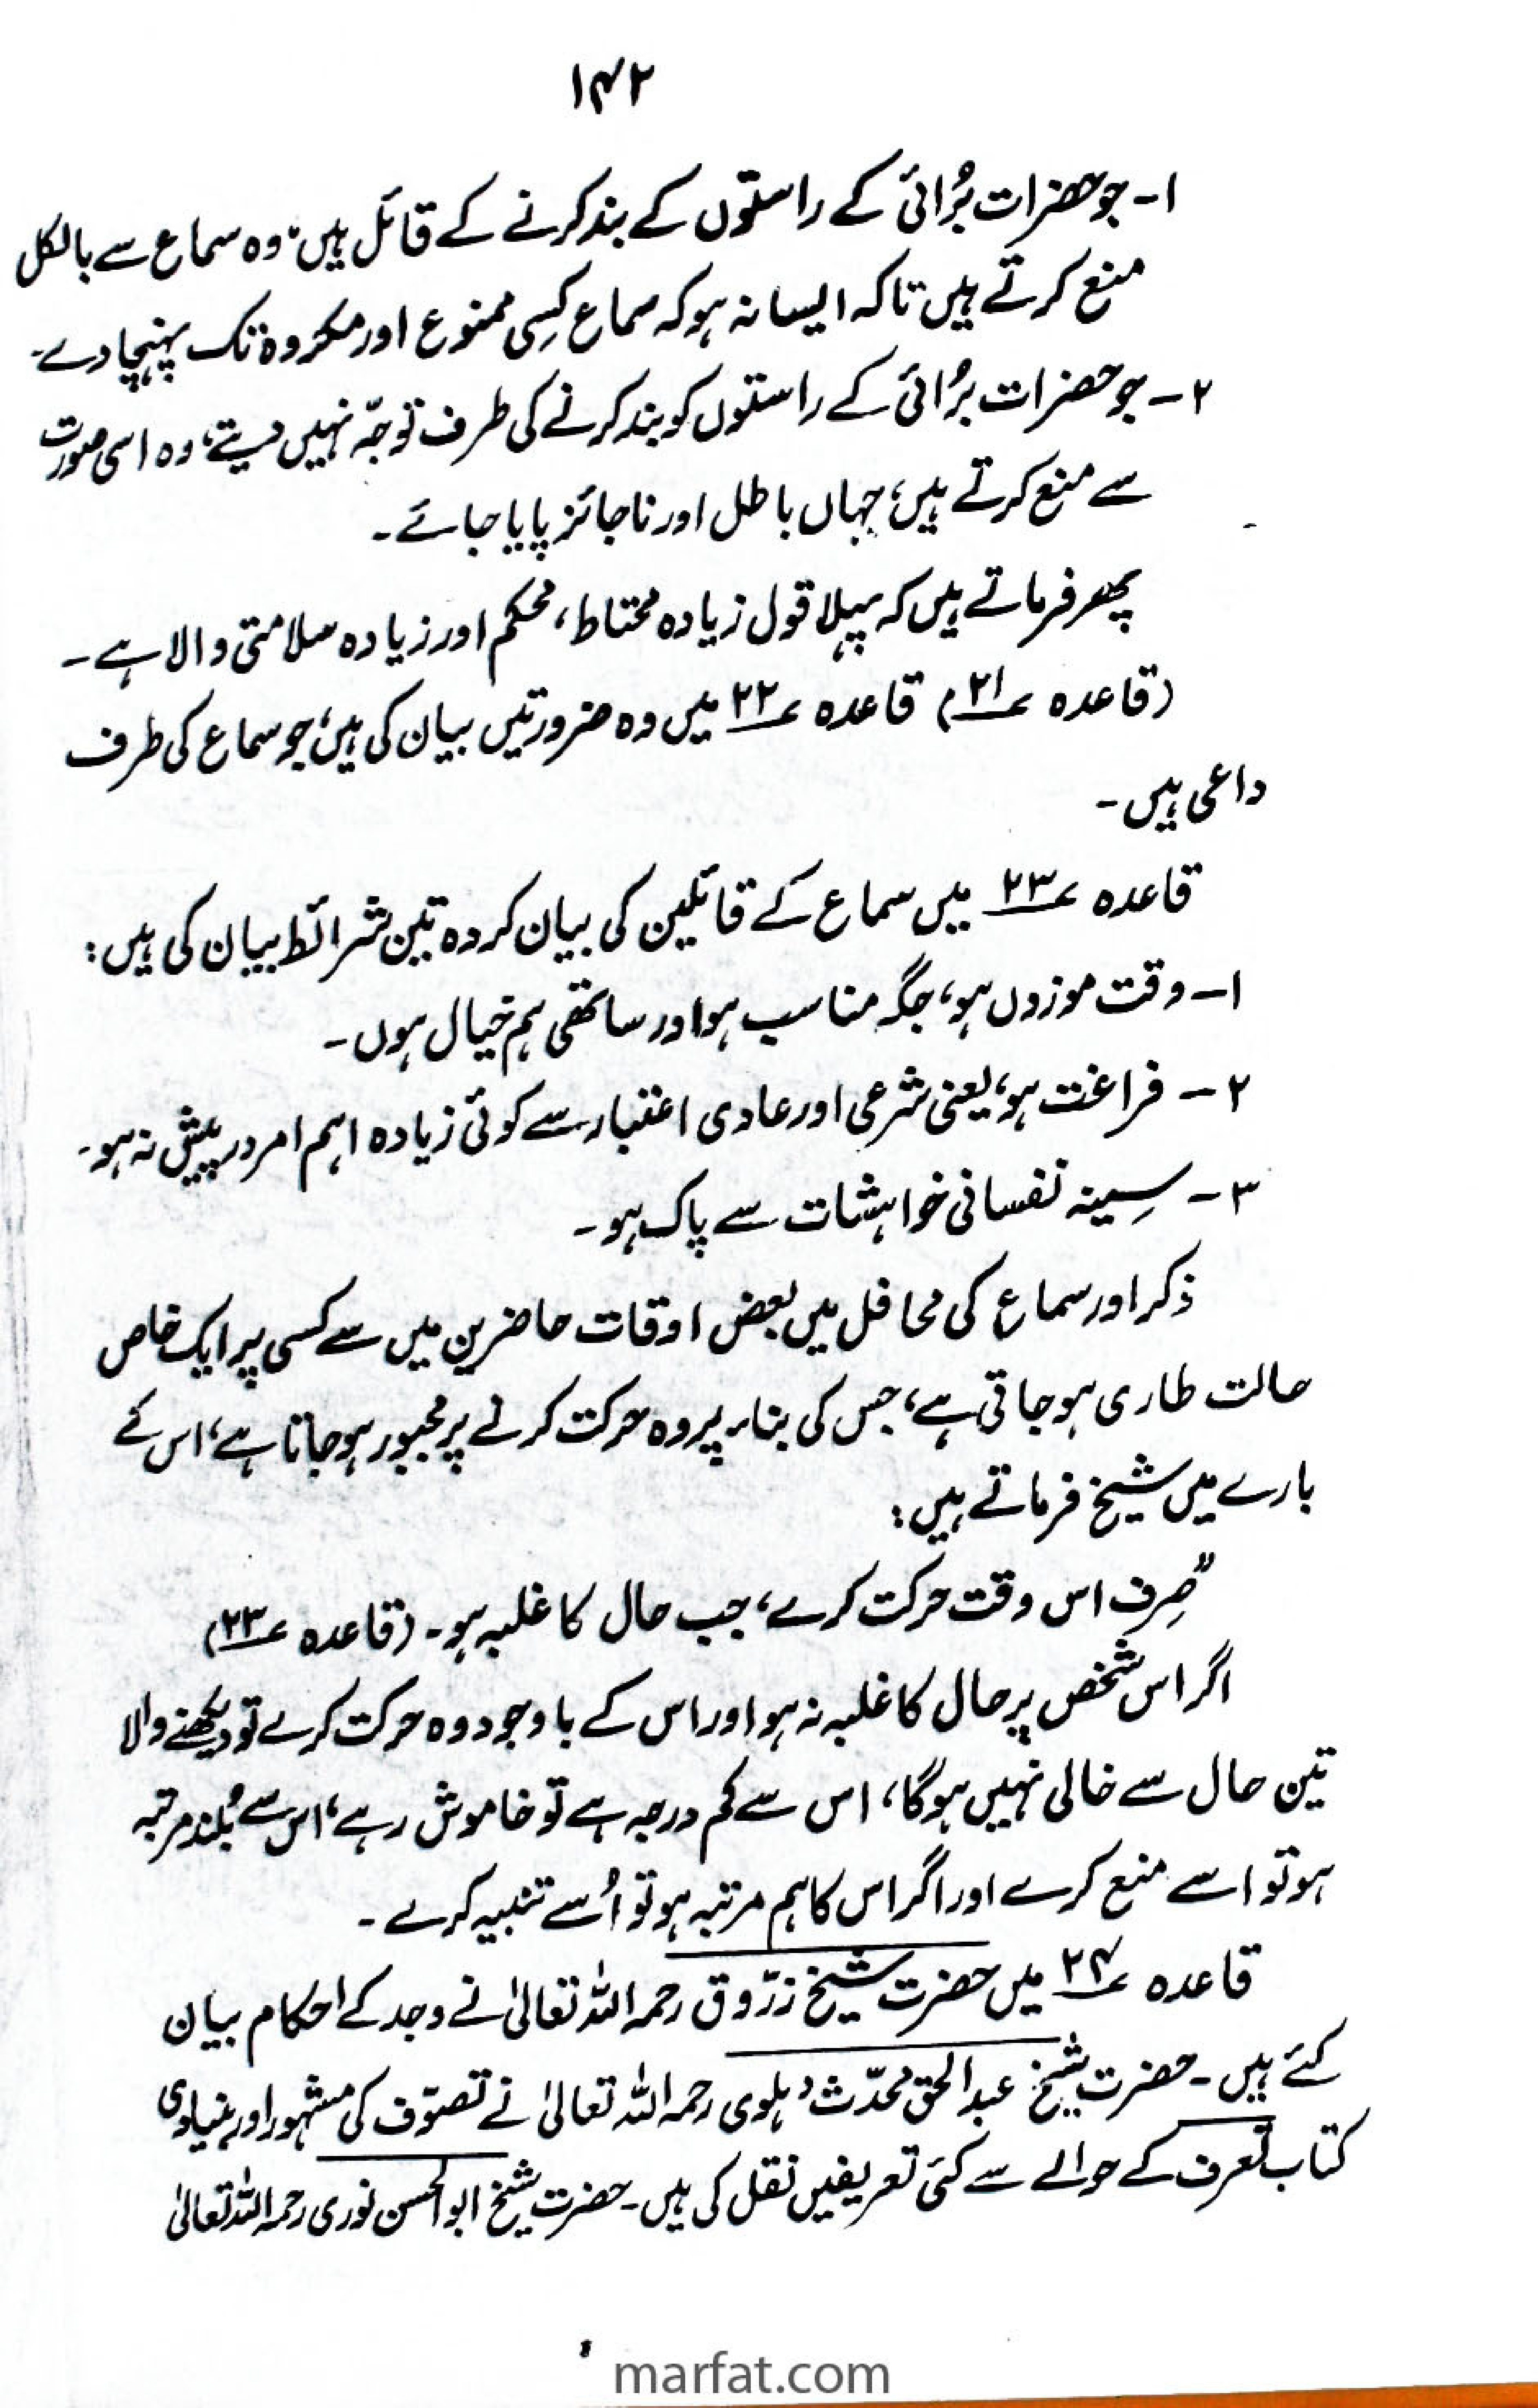 ۱۴۲
۱- جو حضرات بُرائی کے راستوں کے بند کرنے کے قائل ہیں، وہ سماع سے بالکل
منع کرتے ہیں تاکہ ایسا نہ ہو کہ سماع کسِی ممنوع اور مکروہ تک پہنچا دے۔
۲- جو حضرات بُرائی کے راستوں کو بند کرنے کی طرف توجّہ نہیں دیتے، وہ اسی صورت
سے منع کرتے ہیں، جہاں باطل اور ناجائز پایا جائے۔
پھر فرماتے ہیں کہ پہلا قول زیادہ محتاط، محکم اور زیادہ سلامتی والا ہے۔
(قاعدہ ؏۲۱) قاعدہ ؏۲۲ میں وہ ضرورتیں بیان کی ہیں، جو سماع کی طرف
داعی ہیں۔
قاعدہ ؏۲۳ میں سماع کے قائلین کی بیان کردہ تین شرائط بیان کی ہیں:
۱- وقت موزوں ہو، جگہ مناسب ہو اور ساتھی ہم خیال ہوں۔
۲- فراغت ہو، یعنی شرعی اور عادی اعتبار سے کوئی زیادہ اہم امر درپیش نہ ہو۔
۳- سِینہ نفسانی خواہشات سے پاک ہو۔
ذکر اور سماع کی محافل میں بعض اوقات حاضرین میں سے کسی پر ایک خاص
حالت طاری ہو جاتی ہے، جس کی بناء پر وہ حرکت کرنے پر مجبور ہو جاتا ہے، اس کے
بارے میں شیخ فرماتے ہیں:
"صِرف اس وقت حرکت کرے، جب حال کا غلبہ ہو۔ (قاعدہ ؏۲۳)
اگر اس شخص پر حال کا غلبہ نہ ہو اور اس کے باوجود وہ حرکت کرے تو دیکھنے والا
تین حال سے خالی نہیں ہوگا، اس سے کم درجہ ہے تو خاموش رہے، اس سے بُلند مرتبہ
ہو تو اسے منع کرے اور اگر اس کا ہم مرتبہ ہو تو اُسے تنبیہ کرے۔
قاعدہ ؏۲۴ میں حضرت شیخ زرّوق رحمہ اللہ تعالیٰ نے وجد کے احکام بیان
کئے ہیں۔ حضرت شیخ عبدالحق محدّث دہلوی رحمہ اللہ تعالیٰ نے تصوّف کی مشہور اور بنیادی
کتاب تعرف کے حوالے سے کئی تعریفیں نقل کی ہیں۔ حضرت شیخ ابوالحسن نوری رحمہ اللہ تعالیٰ
marfat.com